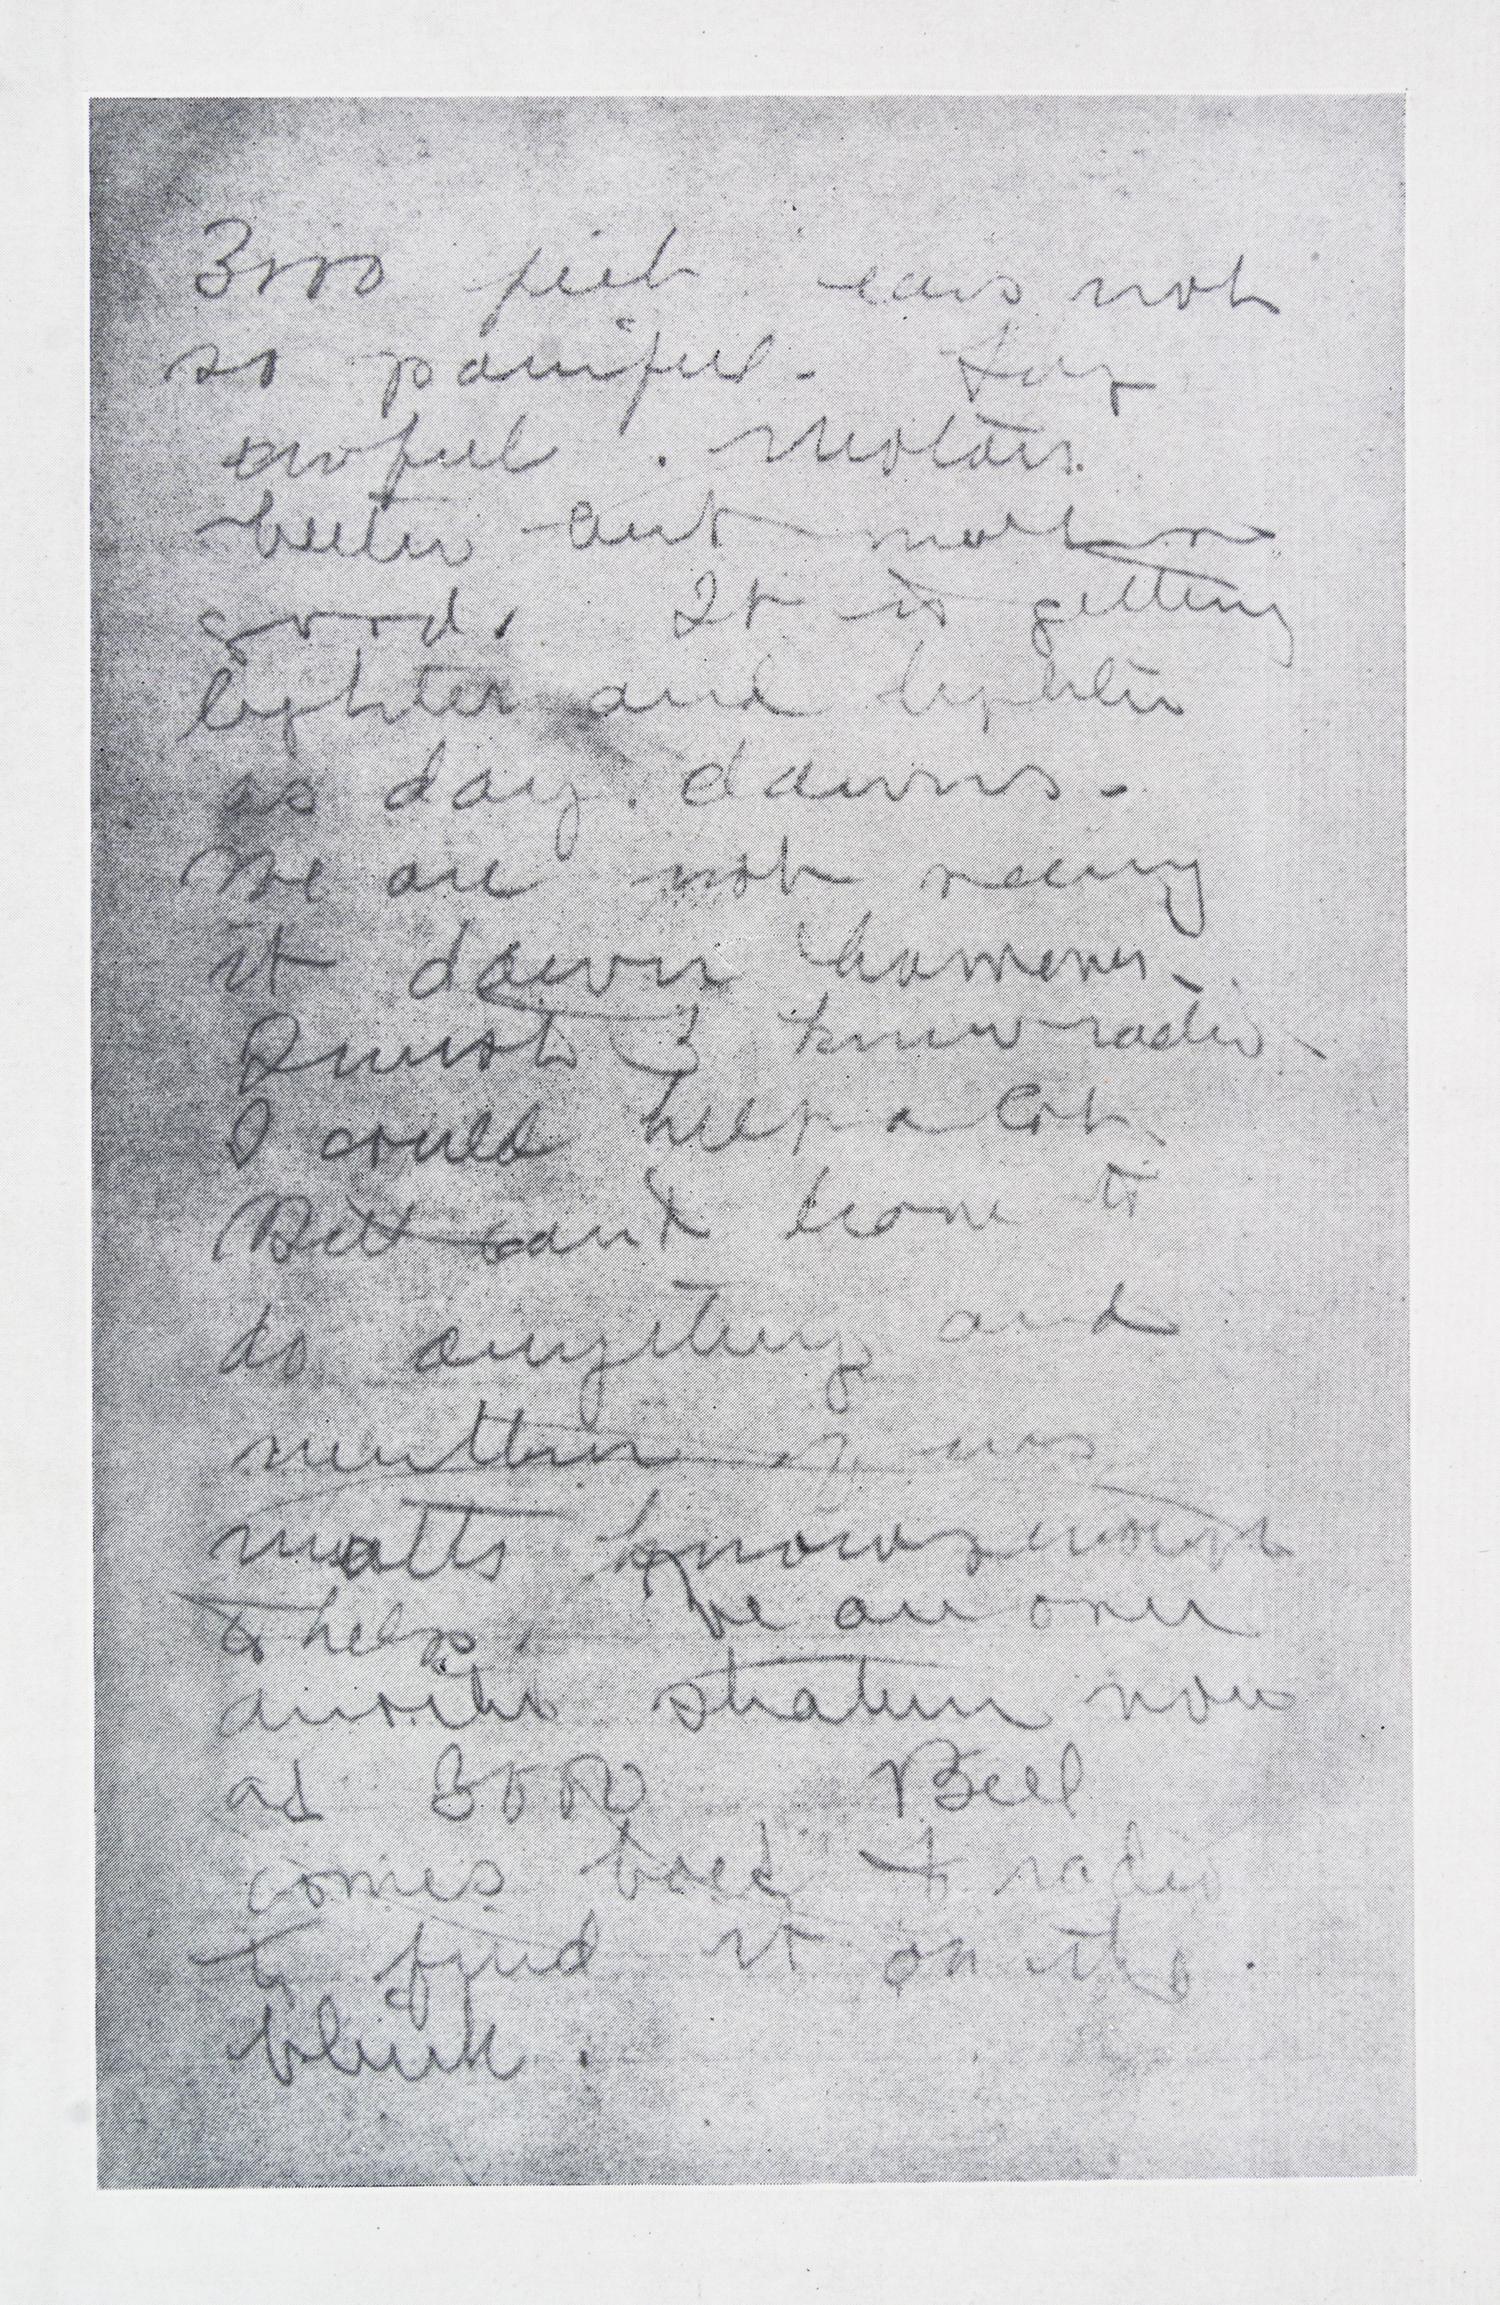 3000 feet. ears not
so painful. Fog
awful. Motors
better but not so
good. It is getting
lighter and lighter
as day dawns.
We are not seeing
it dawn however.
I wish I knew radio.
I could help a lot.
Bill can't leave to
do anything and
neither of us
mutts knows enough
to help. We are over
another stratum now
at 3000 Bill
comes back to radio
to find it on the
blink.